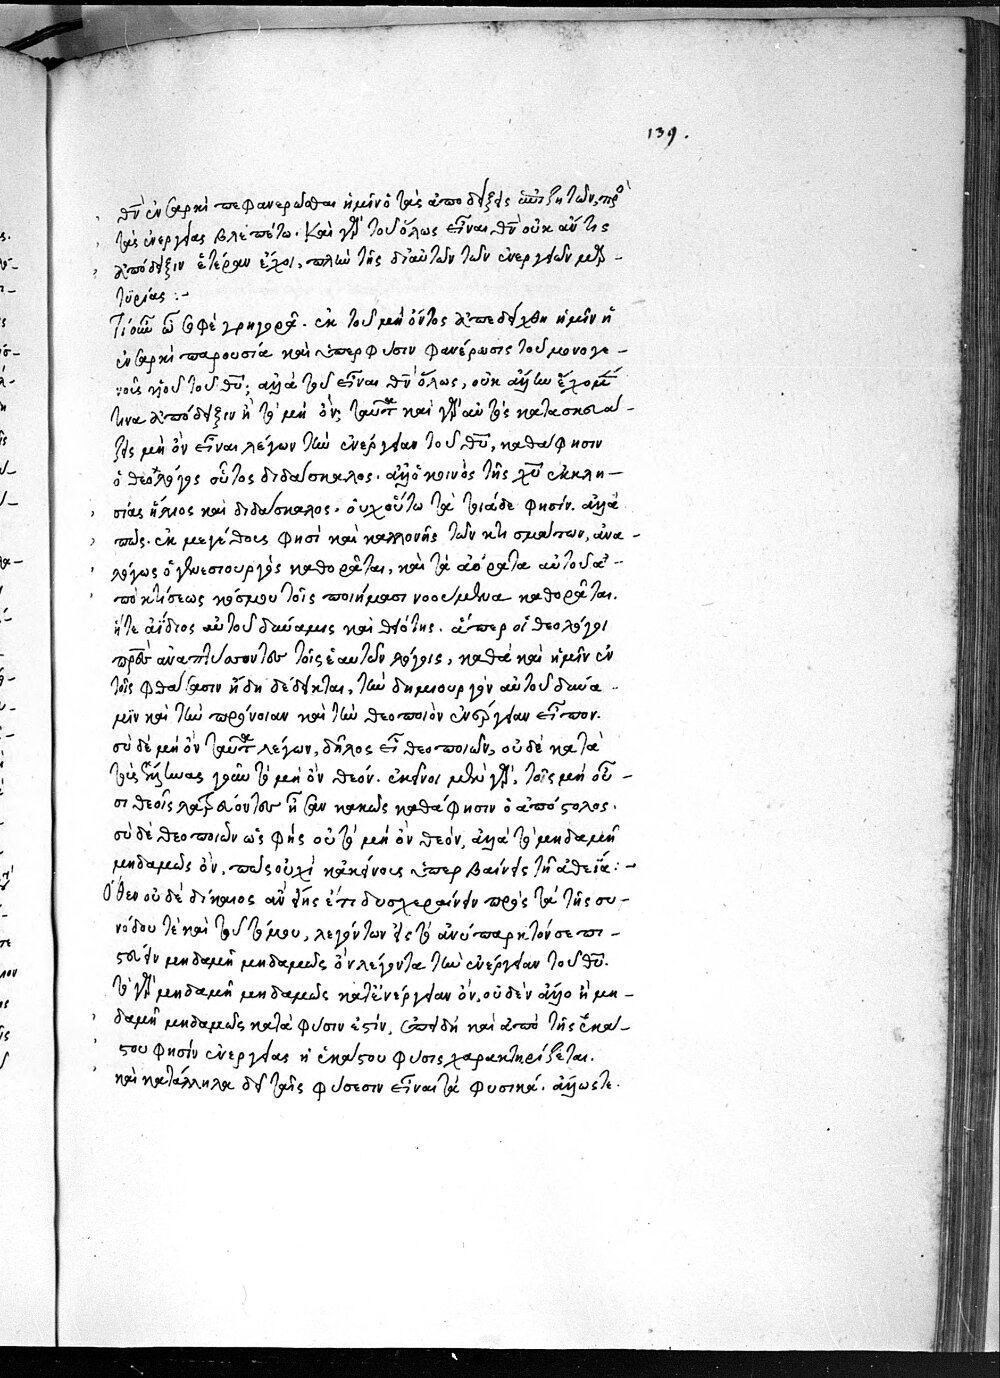 139.
θν̅ ἐν σαρκὶ πεφανερῶσθαι ἡμῖν ὁ τὰς ἀποδείξεις ἐπιζητῶν, πρὸ
τὰς ἐνεργείας βλεπέτω. Καὶ γὰρ τοῦ ὅλως εἶναι θν̅ οὐκ ἄν τις
ἀπόδειξιν ἑτέραν ἔχοι, πλὴν τῆς δι' αὐτῶν τῶν ἐνεργειῶν μαρ-
τυρίας :-
Τί οὖν ὦ σοφὲ γρηγορᾶ. ἐκ τοῦ μὴ ὄντος ἀπεδείχθη ἡμῖν ἡ
ἐν σαρκὶ παρουσία καὶ ὑπερφυσιν φανέρωσις τοῦ μονογε-
νοῦς υἱοῦ τοῦ θυ̅; ἀλλὰ τοῦ εἶναι θν̅ ὅλως, οὐκ ἄλλην ἔχομεν
τινα ἀπόδειξιν ἢ τὸ μὴ ὄν; ταῦτα καὶ γὰρ αὐτὸς κατασκευά-
ζεις μὴ ὂν εἶναι λέγων τὴν ἐνέργειαν τοῦ θυ̅, καθά φησιν
ὁ θεολόγος οὗτος διδάσκαλος. ἀλλ' ὁ κοινὸς τῆς χυ̅ ἐκκλη-
σίας ἥλιος καὶ διδάσκαλος, οὐχ οὕτω τὰ τοιάδε φησίν. ἀλλὰ
πῶς. ἐκ μεγέθους φησὶ καὶ καλλονῆς τῶν κτισμάτων, ἀνα-
λόγως ὁ γενεσιουργὸς καθορᾶται, καὶ τὰ ἀόρατα αὐτοῦ ἀ-
πὸ κτίσεως κόσμου τοῖς ποιήμασι νοούμενα καθορᾶται.
ἥτε ἀΐδιος αὐτοῦ δύναμις καὶ θειότης. ἅπερ οἱ θεολόγοι
πάντες ἀναπτύσσοντες τοῖς ἑαυτῶν λόγοις, καθὰ καὶ ἡμῖν ἐν
τοῖς φθάσασιν ἤδη δέδεικται, τὴν δημιουργὸν αὐτοῦ δύνα-
μιν καὶ τὴν πρόνοιαν καὶ τὴν θεοποιὸν ἐνέργειαν εἶπον.
σὺ δὲ μὴ ὂν ταῦτα λέγων, δῆλος εἶ θεοποιῶν, οὐδὲ κατὰ
τοὺς ἕλληνας γοῦν τὸ μὴ ὂν θεόν. ἐκεῖνοι μὲν γὰρ, τοῖς μὴ οὖ-
σι θεοῖς λατρεύοντες ἦσαν κακῶς καθά φησιν ὁ ἀπόστολος.
σὺ δὲ θεοποιῶν ὡς φῂς οὐ τὸ μὴ ὂν θεόν, ἀλλὰ τὸ μηδαμῆ
μηδαμῶς ὄν, πῶς οὐχὶ κἀκείνους ὑπερβαίνεις τῇ ἀθεΐα :-
Ὅθεν οὐδὲ δίκαιος ἂν εἴης ἔτι δυσχεραίνειν πρὸς τὰ τῆς συ-
νόδου τὲ καὶ τοῦ τόμου, λεγόντων εἰς τὸ ἀνύπαρκτόν σε πι-
στεύειν μηδαμῆ μηδαμῶς ὂν λέγοντα τὴν ἐνέργειαν τοῦ θυ̅.
τὸ γὰρ μηδαμῆ μηδαμῶς κατ' ἐνέργειαν ὄν, οὐδὲν ἄλλο ἢ μη-
δαμῆ μηδαμῶς κατὰ φύσιν ἐστίν. ἐπειδὴ καὶ ἀπὸ τῆς ἑκά-
στου φησὶν ἐνεργείας ἡ ἑκάστου φύσις χαρακτηρίζεται.
καὶ κατάλληλα δεῖ ταῖς φύσεσιν εἶναι τὰ φυσικά. ἄλλως τε.